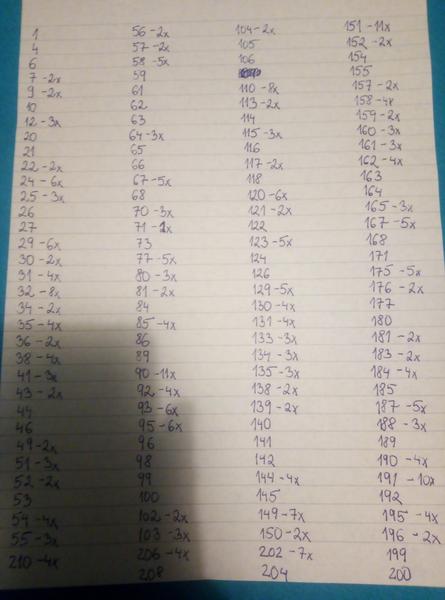 1
4
6
7 -2x
9 -2x
10
12 -3x
20
21
22 -2x
24 - 6x
25 - 3x
26
27
29 -6x
30 -2x
31 - 4x
32 - 8x
34 -2x
35 -4x
36 -2x
38 -4x
41 -3x
43 -2x
44
46
49 -2x
51 -3x
52 -2x
53
54 -4x
55 -3x
210 -4x
56 -2x
57 -2x
58 -5x
59
61
62
63
64 -3x
65
66
67 -5x
68
70 -3x
71 -2x
73
77 -5x
80 -3x
81 -2x
84
85 -4x
86
89
90 -11x
92 -4x
93 -6x
95 -6x
96
98
99
100
102 -2x
103 -3x
206 -4x
208
104 -2x
105
106
110 -8x
113 -2x
114
115 -3x
116
117 -2x
118
120 -6x
121 -2x
122
123 -5x
124
126
129 -5x
130 -4x
131 -4x
133 -3x
134 -3x
135 -3x
138 -2x
139 -2x
140
141
142
144 -4x
145
149 -7x
150 -2x
202 -7x
204
151 -11x
152 -2x
154
155
157 -2x
158 -4x
159 -2x
160 -3x
161 -3x
162 -4x
163
164
165 -3x
167 -5x
168
171
175 -5x
176 -2x
177
180
181 -2x
183 -2x
184 -4x
185
187 -5x
188 -3x
189
190 -4x
191 -10x
192
195 -4x
196 -2x
199
200